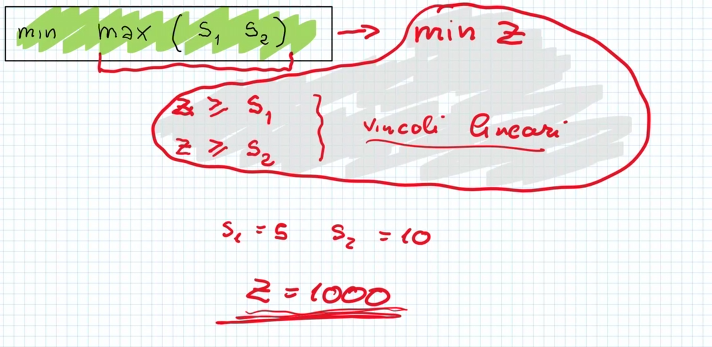 min max ( S₁ S₂ ) → min Z
Z ≥ S₁
Z ≥ S₂ } vincoli lineari
S₁ = 5 S₂ = 10
Z = 1000